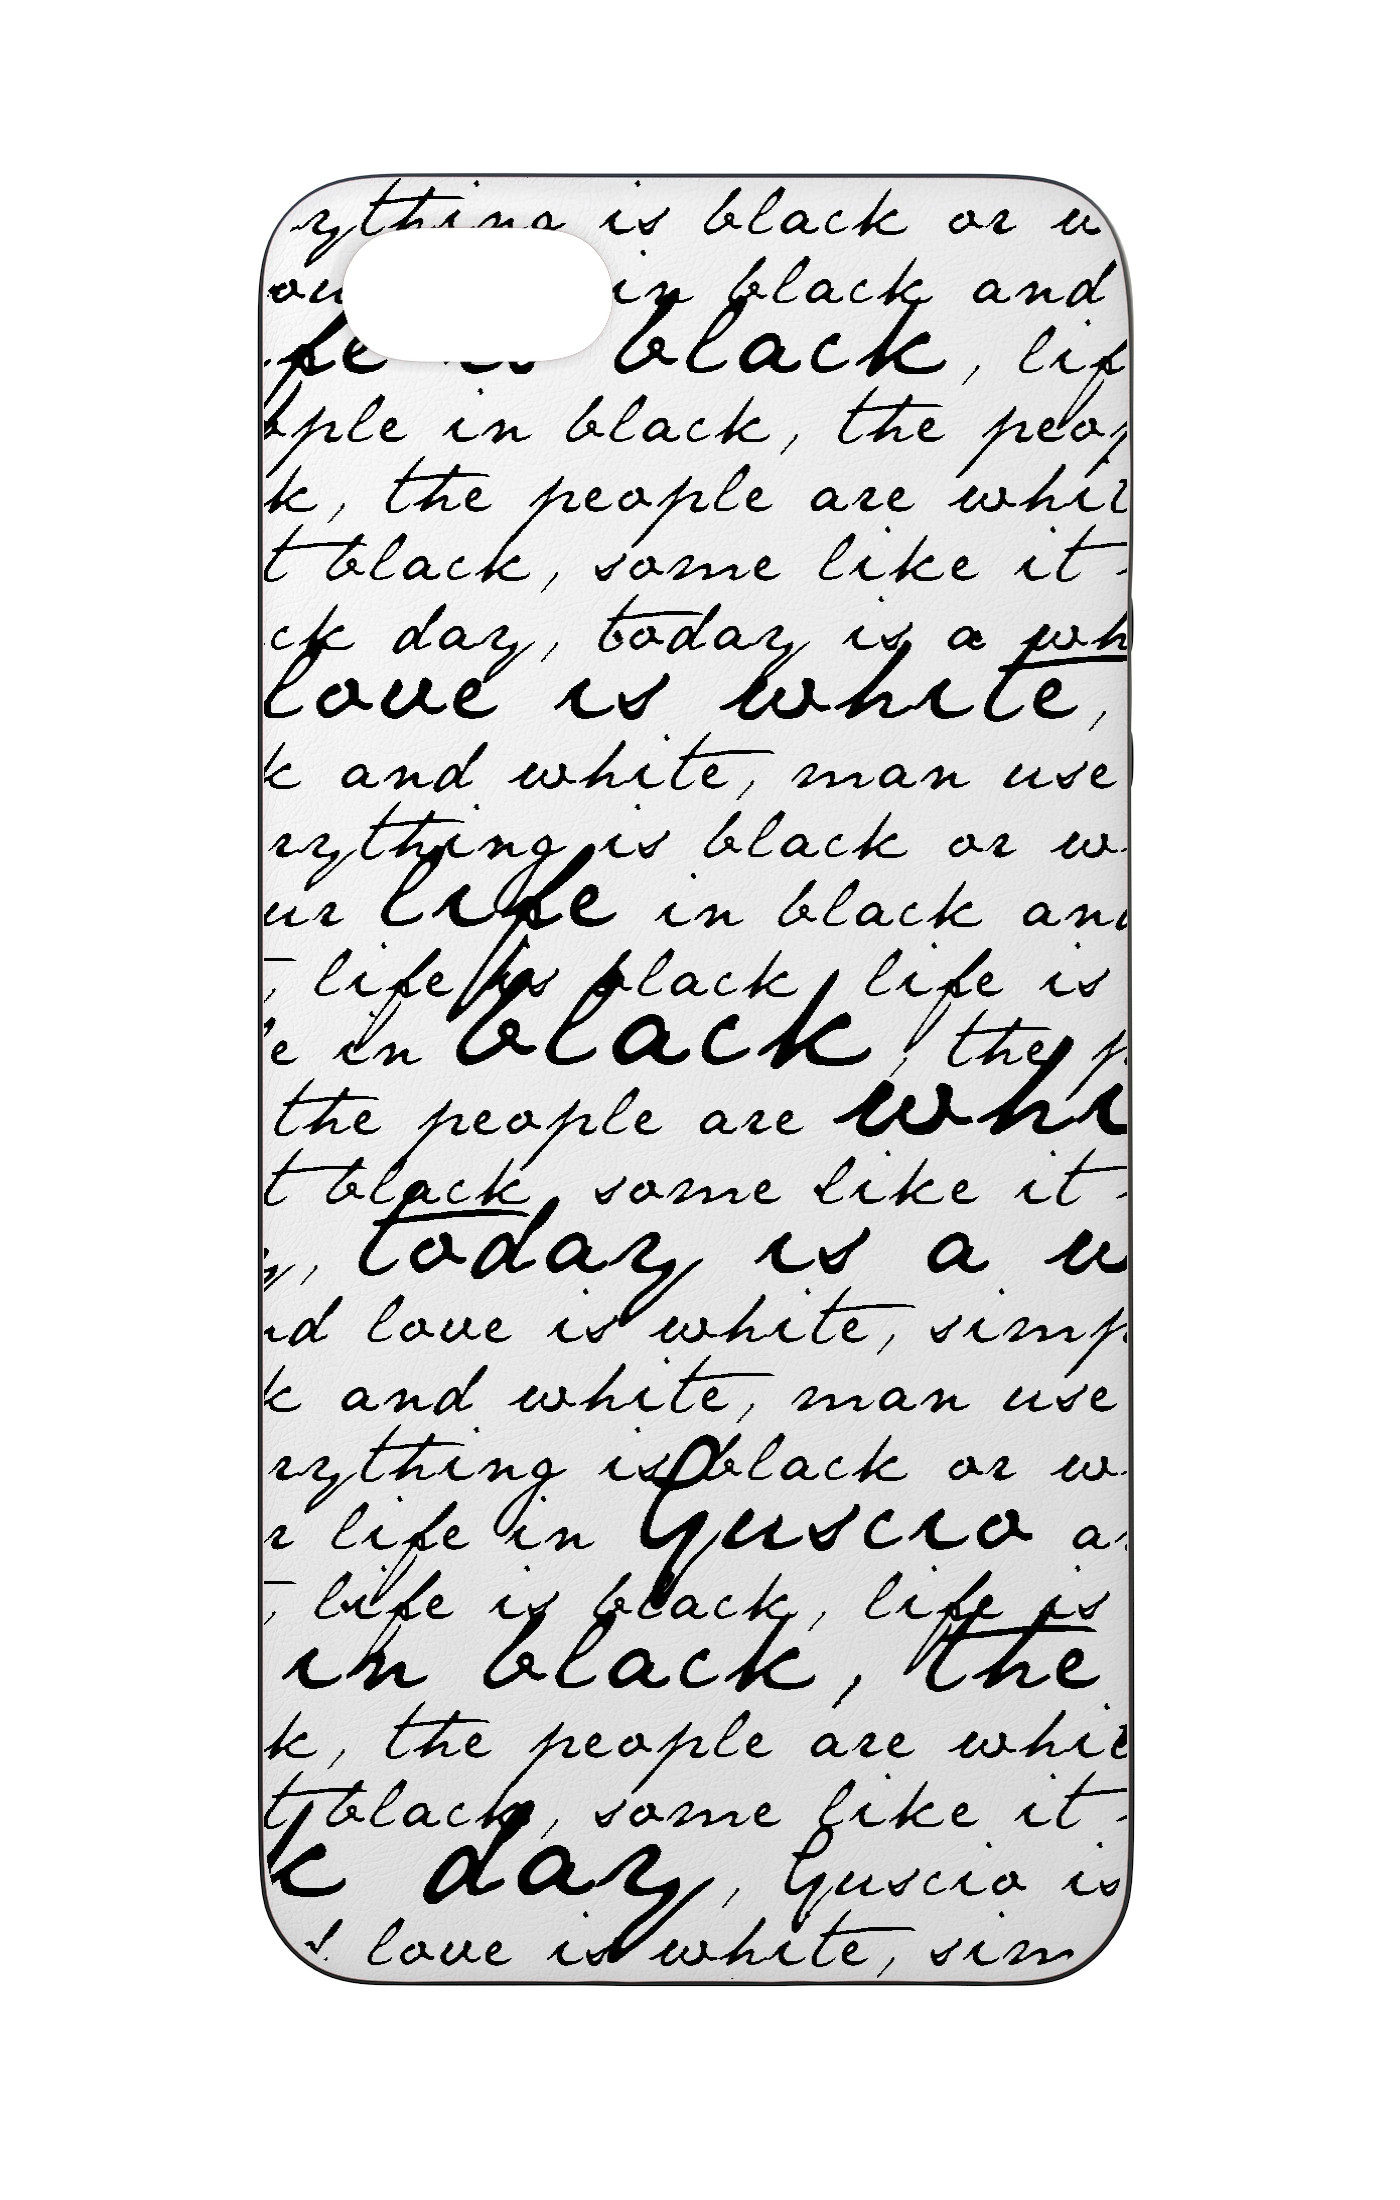 rything is black or w
ou in black and
fe is black, lif
ople in black, the peop
k, the people are whit
t black, some like it
ck day, today is a wh
love is white,
k and white, man use
rything is black or w
ur life in black and
, life is black, life is
le in black, the p
the people are whi
t black, some like it
y, today is a w
nd love is white, simp
k and white, man use
rything is black or w
r life in Guscio a
, life is black, life is
in black, the
k, the people are whit
t black, some like it
k day, Guscio is
love is white, sim